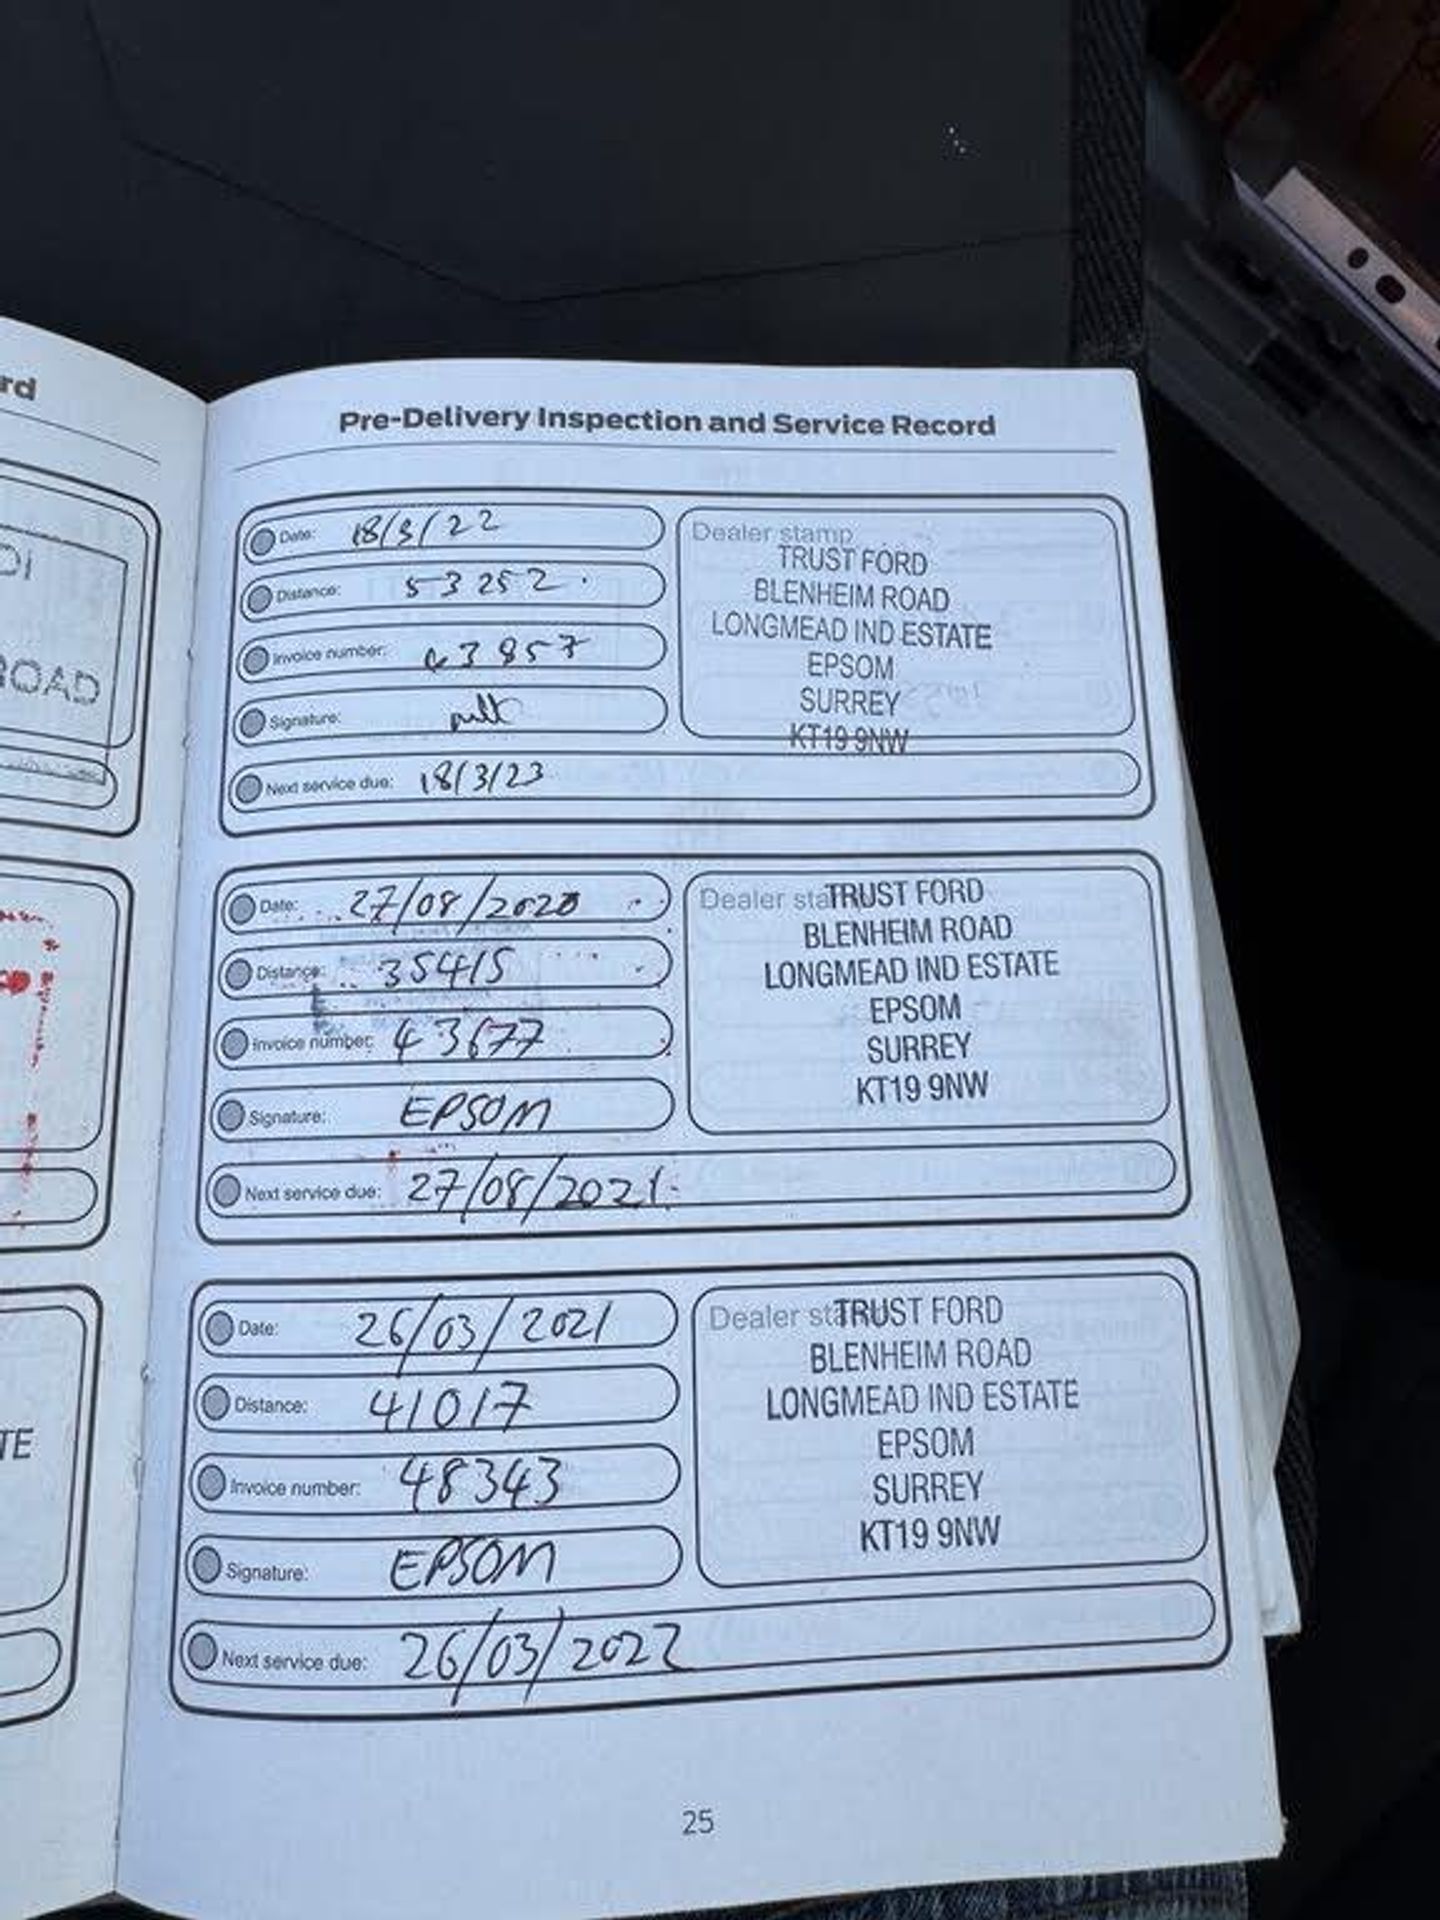 rd
Pre-Delivery Inspection and Service Record
Date: 18/3/22
Distance: 53252
Invoice number: 63857
Signature:
Next service due: 18/3/23
Dealer stamp
TRUST FORD
BLENHEIM ROAD
LONGMEAD IND ESTATE
EPSOM
SURREY
KT19 9NW
Date: 27/08/2020
Distance: 35415
Invoice number: 43677
Signature: EPSOM
Next service due: 27/08/2021
Dealer stamp
TRUST FORD
BLENHEIM ROAD
LONGMEAD IND ESTATE
EPSOM
SURREY
KT19 9NW
Date: 26/03/2021
Distance: 41017
Invoice number: 48343
Signature: EPSOM
Next service due: 26/03/2022
Dealer stamp
TRUST FORD
BLENHEIM ROAD
LONGMEAD IND ESTATE
EPSOM
SURREY
KT19 9NW
OAD
TE
25